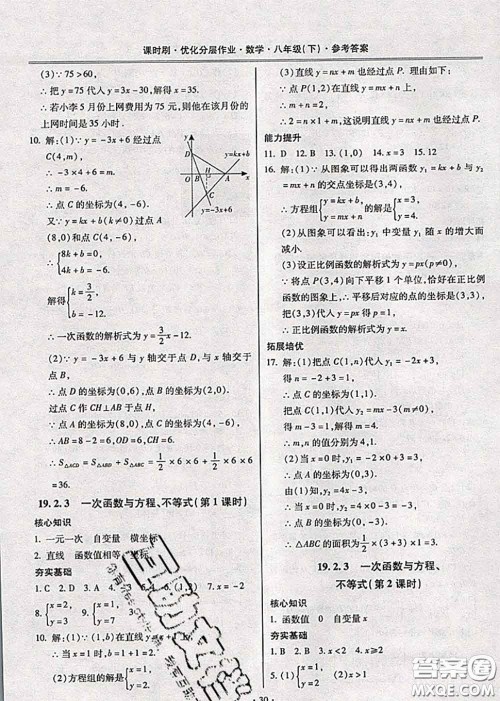 课时刷·优化分层作业·数学·八年级(下)·参考答案
(3)∵75>60,
∴把 y=75 代入 y=3x-30,得 x=35.
∴若小李 5 月份上网费用为 75 元,则他在该月份的
上网时间是 35 小时.
10. 解:(1)∵y=-3x+6 经过点
C(4,m),
∴-3×4+6=m.
∴m=-6.
∴点 C 的坐标为(4,-6).
又∵y=kx+b(k≠0)过点 A
(8,0)和点 C(4,-6),
∴{8k+b=0,
4k+b=-6.
解得{k=3/2,
b=-12.
∴一次函数的解析式为 y=3/2x-12.
(2)∵y=-3x+6 与 y 轴交于点 D,与 x 轴交于
点 B,
∴点 D 的坐标为(0,6),点 B 的坐标为(2,0).
过点 C 作 CH⊥AB 于点 H,
∴AB=8-2=6,OD=6,CH=6.
∴S△ACD=S△ABD+S△ABC=1/2×6×6+1/2×6×6=
36.
19.2.3 一次函数与方程、不等式(第 1 课时)
核心知识
1. 一元一次 自变量 横坐标
2. 直线 函数值相等 坐标
夯实基础
1. C 2. D 3. A
7. x=-2
8. {x=2,
y=3
9. {x=1,
y=2
10. 解:(1)∵(1,b)在直线 y=x+1 上,
(2)方程组的解是{x=1,
y=2.
(3)直线 y=nx+m 也经过点 P. 理由如下:
∵点 P(1,2)在直线 y=mx+n 上,
∴m+n=2.
∴2=n×1+m,这说明直线 y=nx+m 也经过点 P.
能力提升
11. D 12. B 13. (1,0) 14. x=3 15. 12
16. 解:(1)∵从图象可以得出两函数 y₁=kx+b 与
y₂=mx+n 的交点坐标是(3,4),
∴方程组{y=kx+b,
y=mx+n
的解是{x=3,
y=4.
(2)从图象可以看出:y₁ 中变量 y₁ 随 x 的增大而
减小.
(3)设正比例函数的解析式为 y=px(p≠0),
∵将点 P(3,4)向下平移 1 个单位,恰好在正比例函
数的图象上,∴平移后对应的点的坐标为(3,3).
∴3=3p,解得 p=1.
∴正比例函数的解析式为 y=x.
拓展培优
17. 解:(1)把点 C(1,n)代入 y=-2x+3,
得 n=-2+3=1.
∴点 C 的坐标为(1,1).
把点 C(1,1)代入 y=mx-3,
得 1=m-3,解得 m=4.
∴m,n 的值分别为 4,1.
∴点 A 的坐标为(0,3),
∴△ABC 的面积为
19.2.3 一次函数与方程、
不等式(第 2 课时)
核心知识
1. 函数值 0 自变量 x
夯实基础
1. D 2. D 3. A
5. (1)x=-2
y=kx+b
y=-3x+6
30
答案圈
MXQE.COM